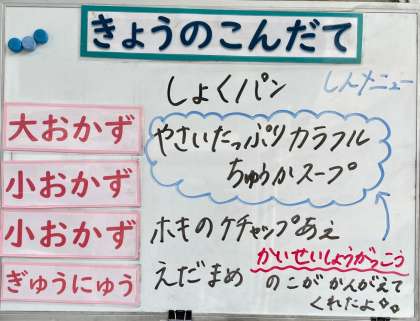 きょうのこんだて
しょくパン
しんメニュー
大おかず
やさいたっぷりカラフル
ちゅうかスープ
小おかず
小おかず
ホキのケチャップあえ
かいせいしょうがっこう
ぎゅうにゅう
えだまめ
のこがかんがえて
くれたよ